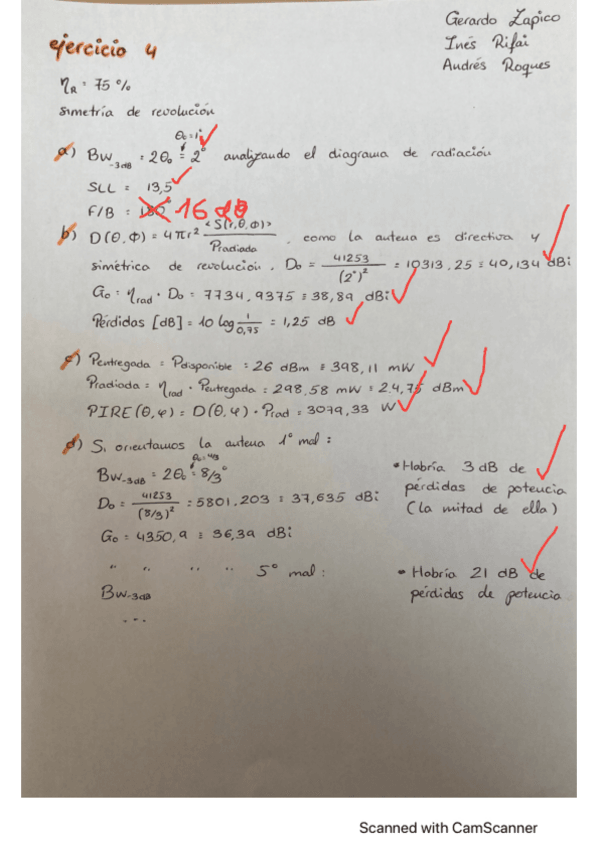 Gerardo Zapico
Inés Rifai
Andrés Roques
ejercicio 4
ηR = 75 %
simetría de revolución
θo = 1°
a) BW-3dB = 2θo = 2° analizando el diagrama de radiación
SLL = 13,5
F/B = 180° 16 dB
b) D(θ,Φ) = 4πr² <S(r,θ,Φ)> / Pradiada , como la antena es directiva y
simétrica de revolución, Do = 41253 / (2°)² = 10313,25 ≡ 40,134 dBi
Go = ηrad · Do = 7734,9375 ≡ 38,89 dBi
Pérdidas [dB] = 10 log 1/0,75 = 1,25 dB
c) Pentregada = Pdisponible = 26 dBm ≡ 398,11 mW
Pradiada = ηrad · Pentregada = 298,58 mW = 24,75 dBm
PIRE(θ,φ) = D(θ,φ) · Prad = 3079,33 W
d) Si orientamos la antena 1° mal :
θo = 4/3
BW-3dB = 2θo = 8/3°
Do = 41253 / (8/3)² = 5801,203 ≡ 37,635 dBi
Go = 4350,9 ≡ 36,39 dBi
• Habría 3 dB de
pérdidas de potencia
(la mitad de ella)
" " " " 5° mal :
BW-3dB
...
• Habría 21 dB de
pérdidas de potencia
Scanned with CamScanner